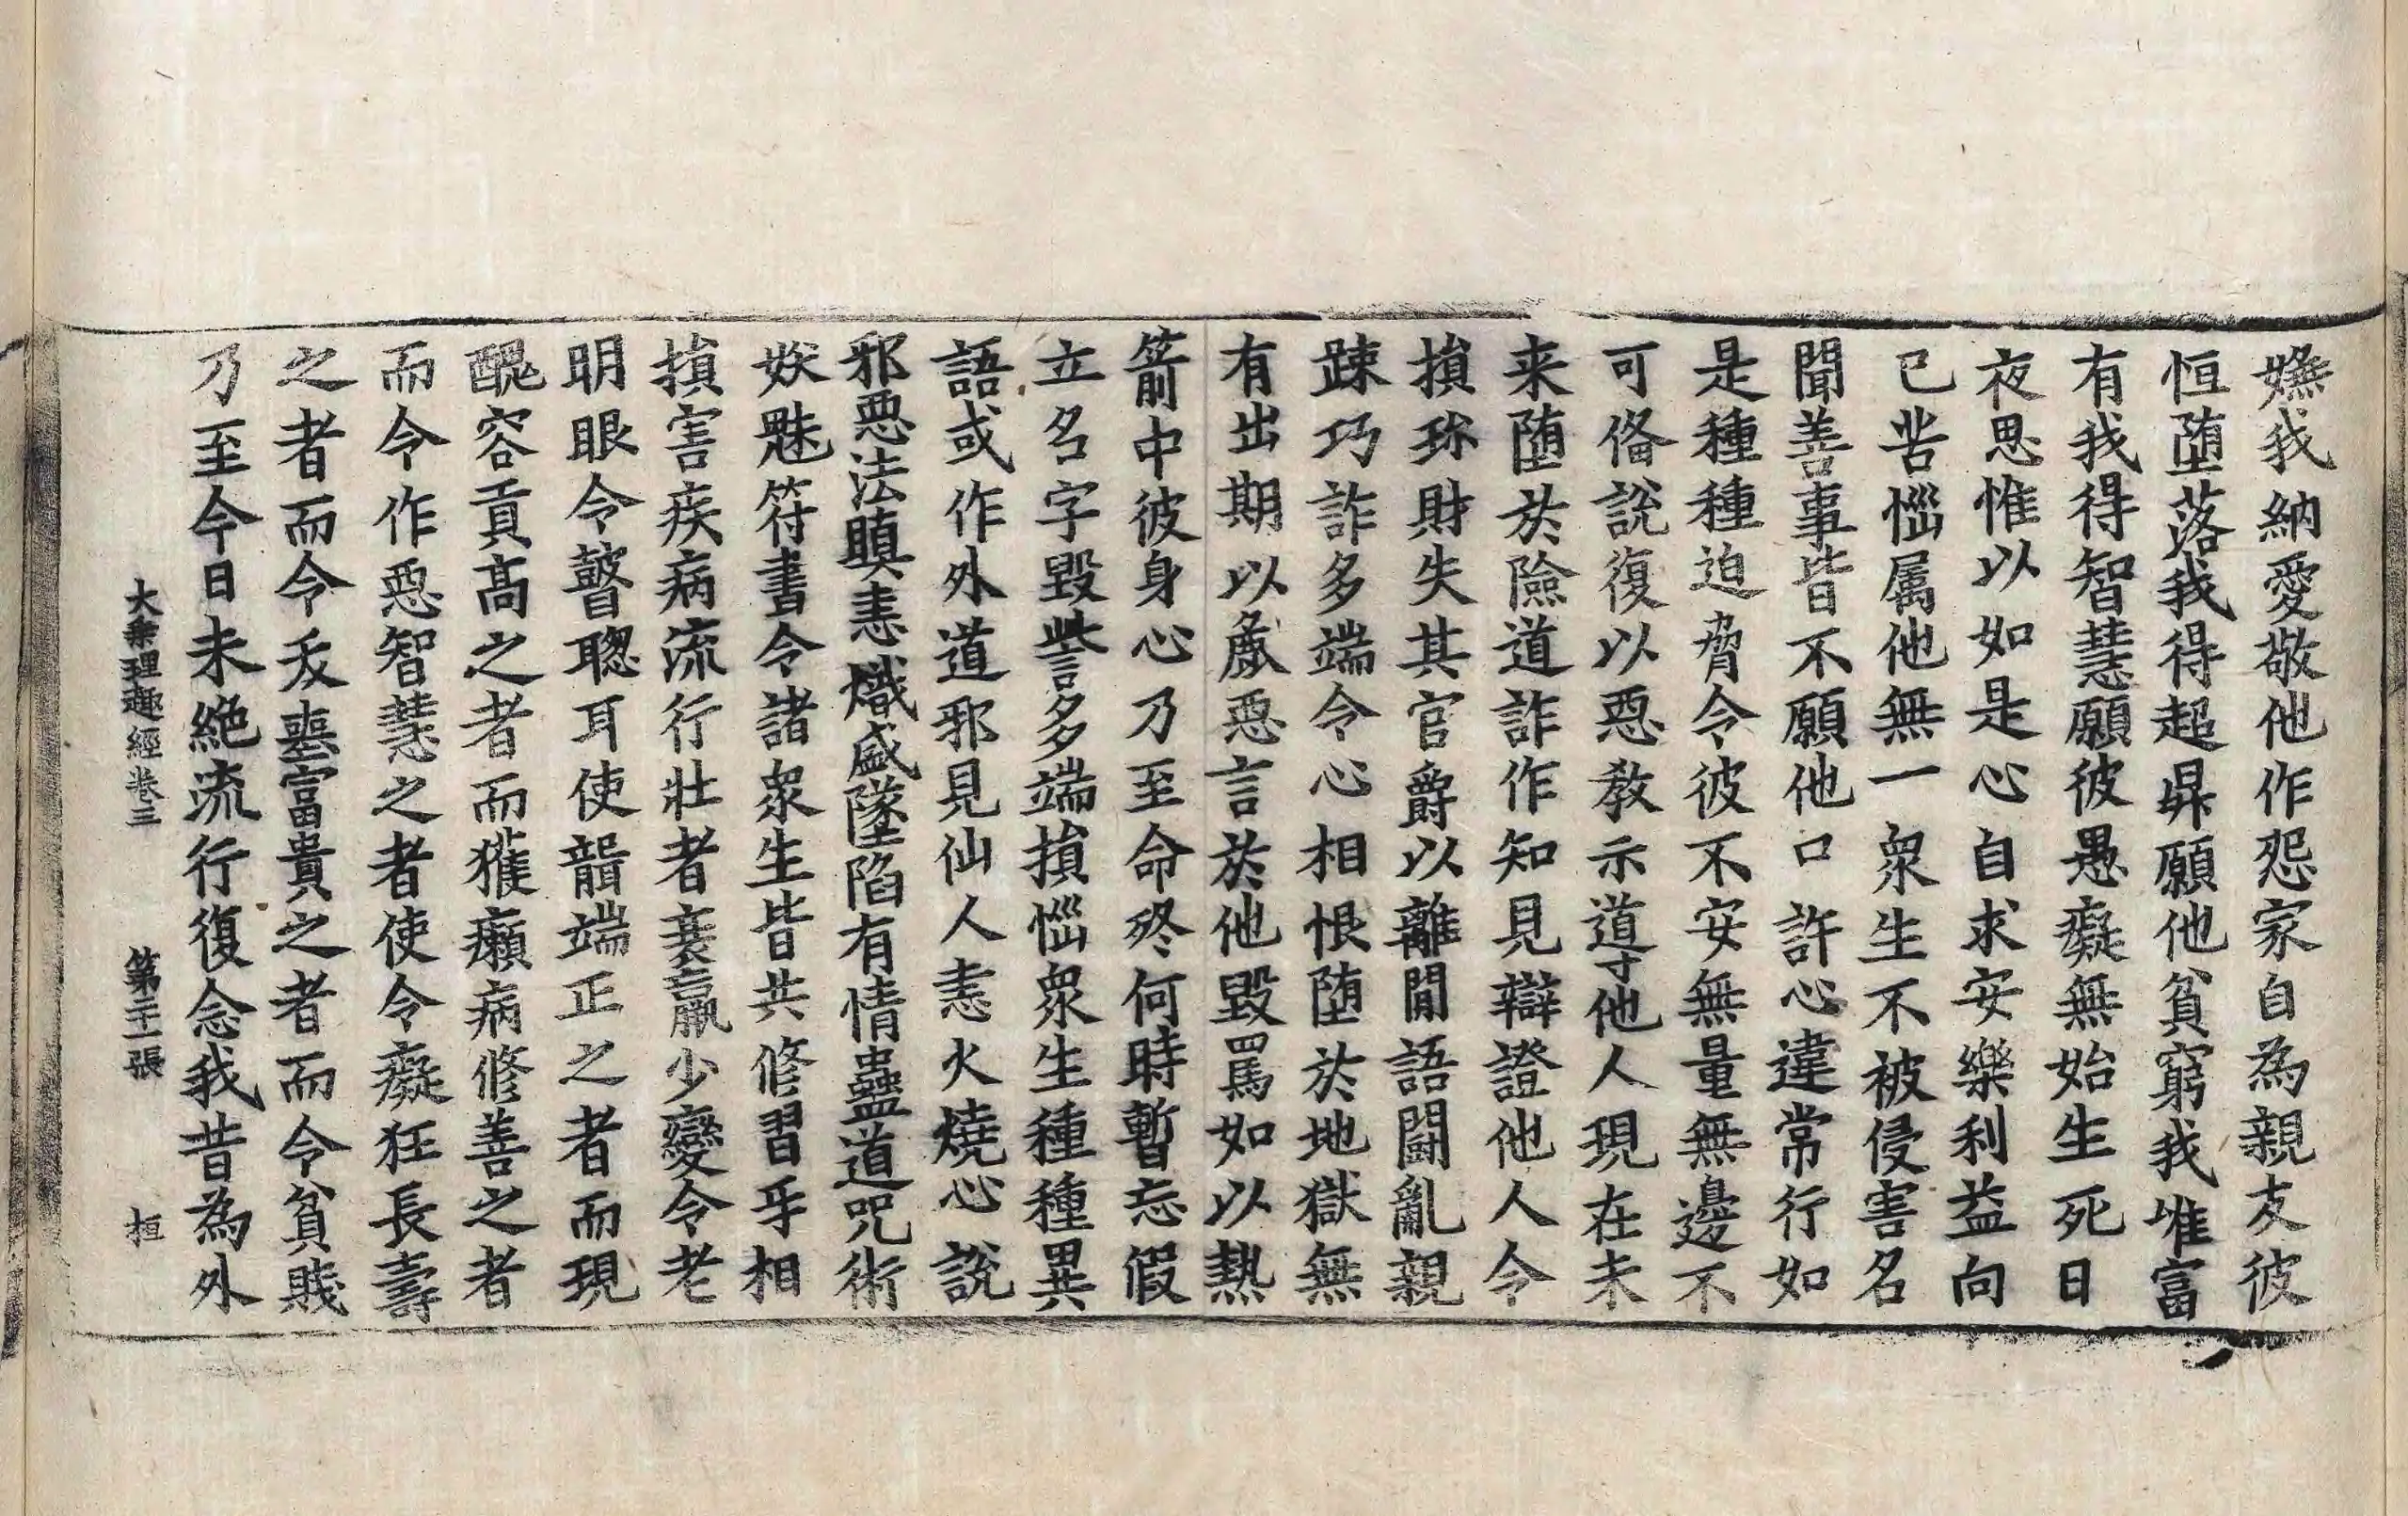 嫵我納愛敬他作怨家自為親友彼
恒墮落我得超昇願他貧窮我唯富
有我得智慧願彼愚癡無始生死日
夜思惟以如是心自求安樂利益向
已苦惱屬他無一衆生不被侵害名
聞善事皆不願他口許心違常行如
是種種迫脅令彼不安無量無邊不
可俻說復以惡教示導他人現在未
来墮於險道詐作知見辯證他人令
損珎財失其官爵以離間語鬪亂親
踈巧詐多端令心相恨墮於地獄無
有出期以麁惡言於他毀罵如以熱
箭中彼身心乃至命終何時暫忘假
立名字毀訾多端損惱衆生種種異
語或作外道邪見仙人恚火燒心說
邪惡法瞋恚熾盛墜陷有情蠱道呪術
妖魅符書令諸衆生皆共修習乎相
損害疾病流行壯者衰羸少變令老
明眼令瞽聦耳使聾端正之者而現
醜容貢高之者而獲癩病修善之者
而令作惡智慧之者使令癡狂長壽
之者而令夭喪富貴之者而令貧賤
乃至今日未絶流行復念我昔為外
大乘理趣經卷三　第二十一張　桓